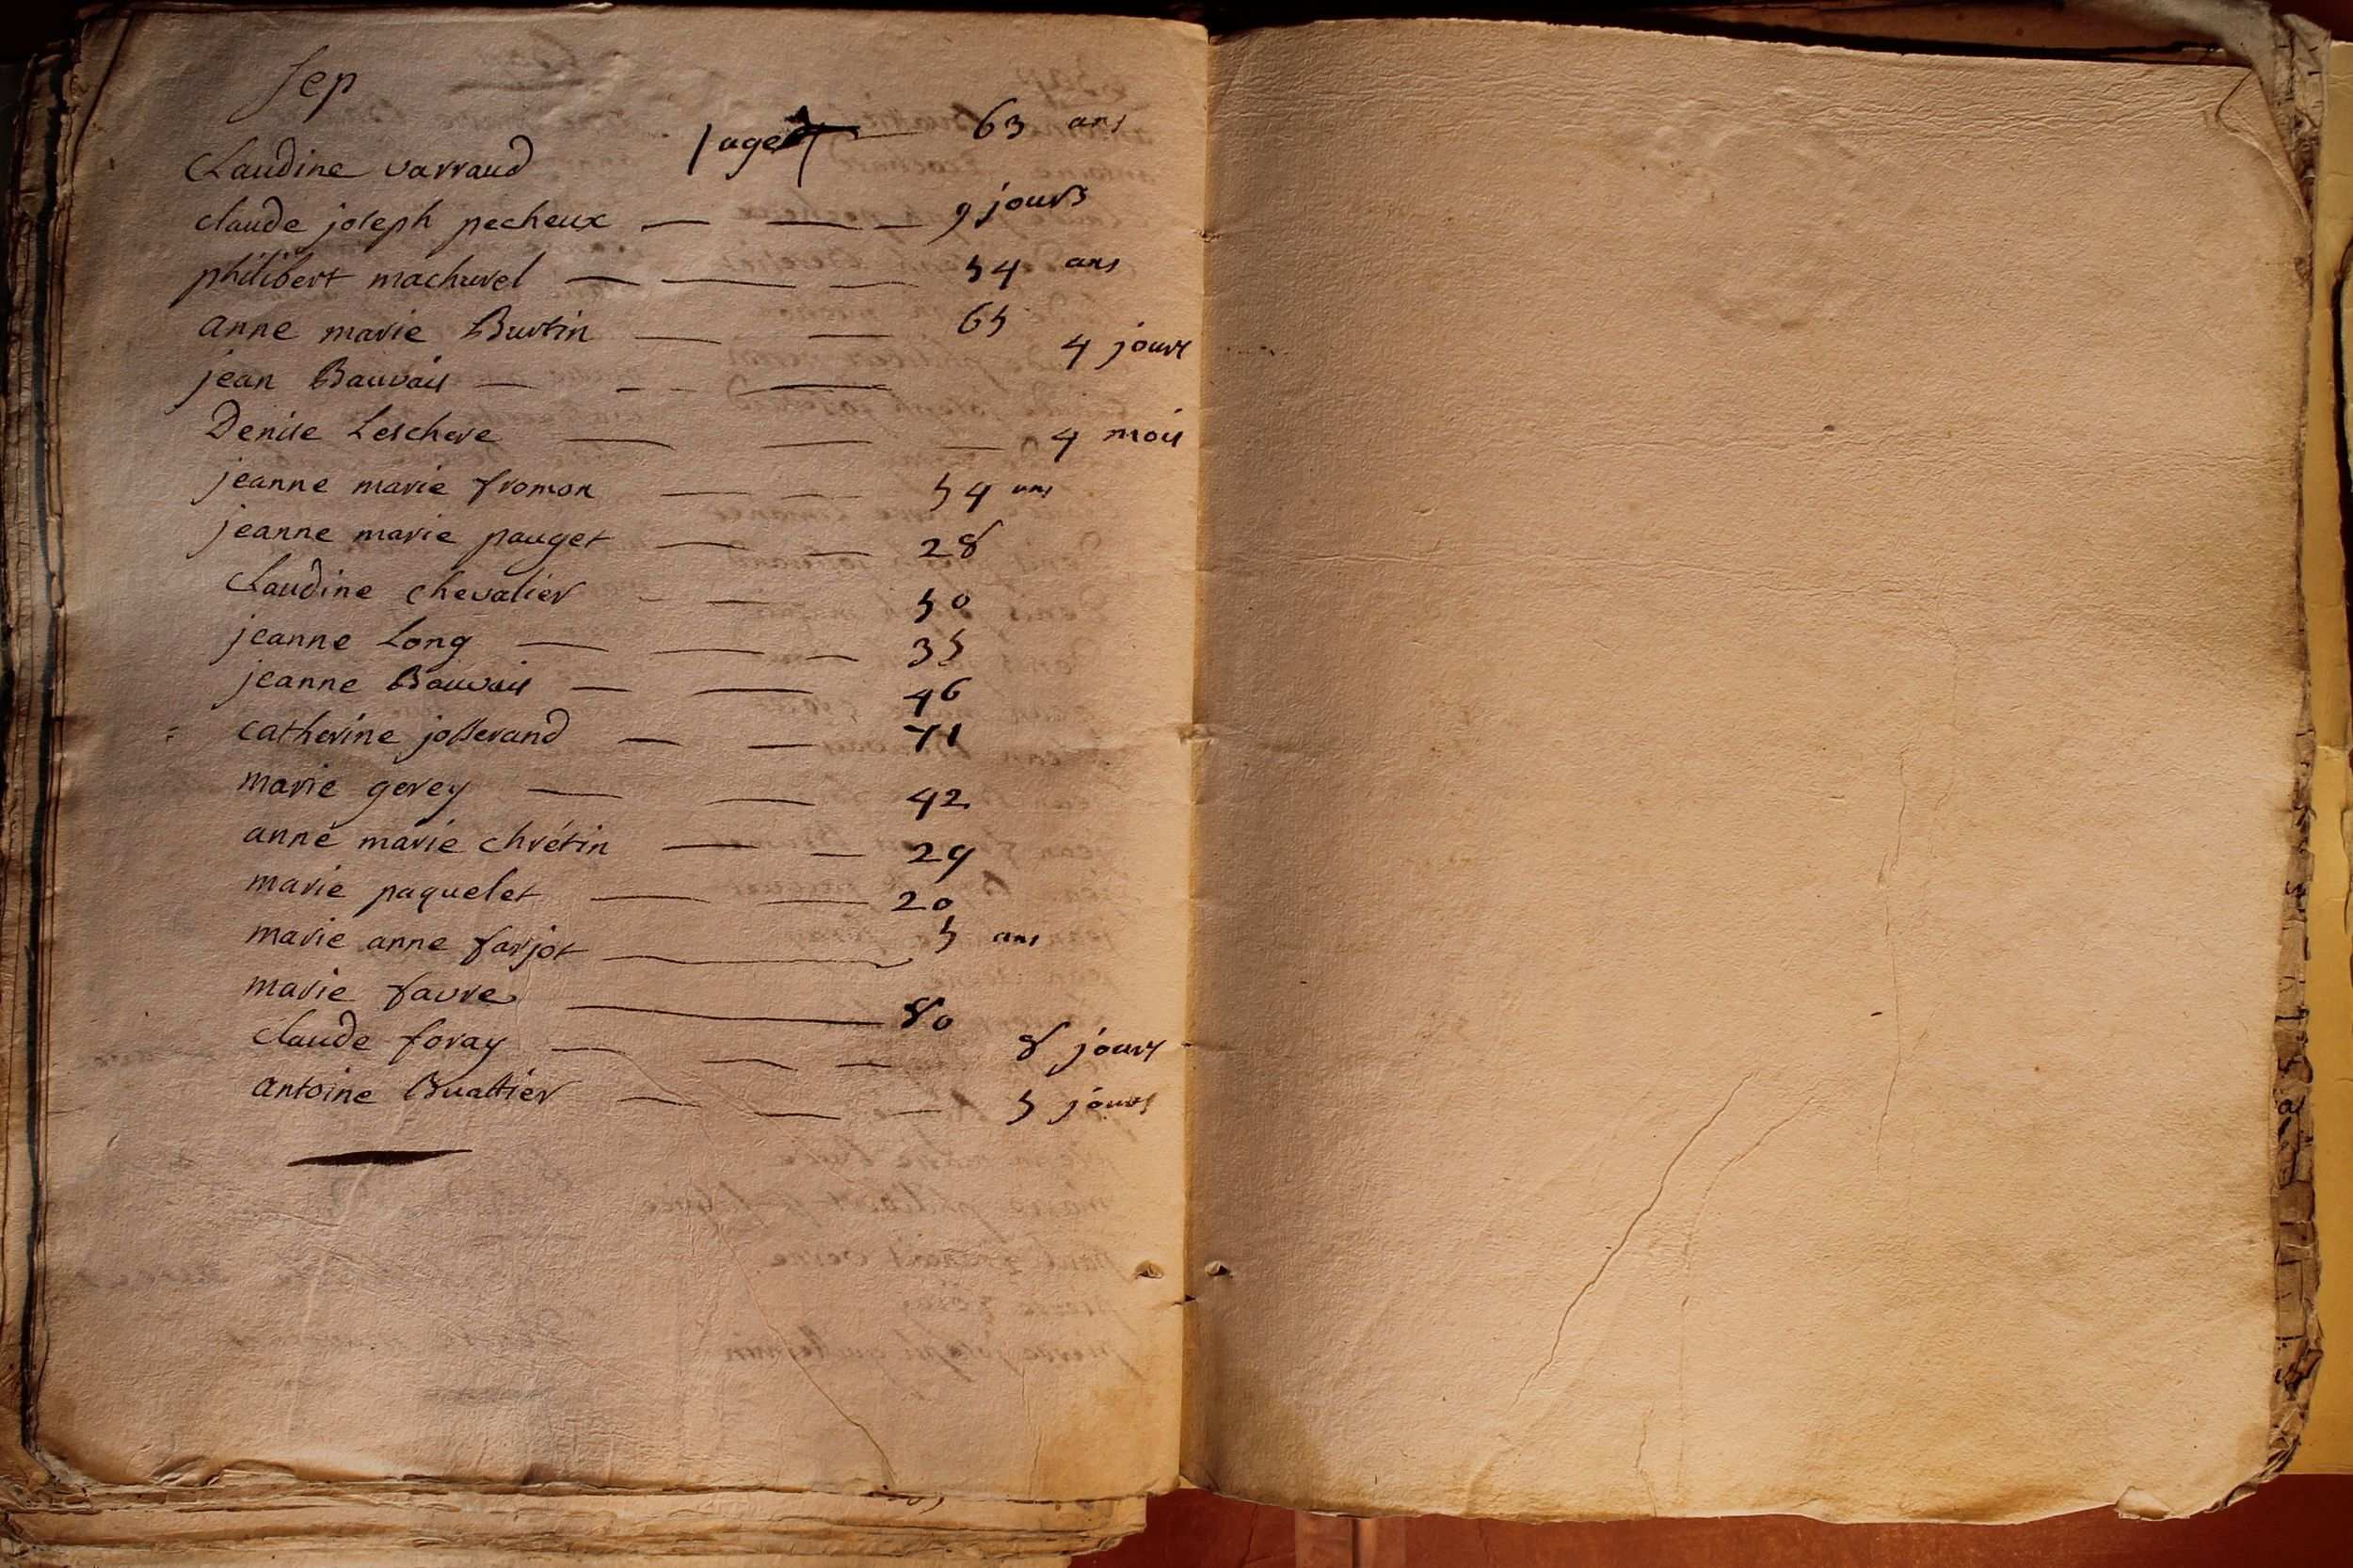 Sep
Claudine varraud aget 63 ans
claude joseph pecheux 9 jours
philibert machurel 54 ans
anne marie Burtin 65
jean Bauvais 4 jours
Denise Leschere 4 mois
jeanne marie fromon 54 ans
jeanne marie pauget 28
Claudine chevalier 50
jeanne Long 35
jeanne Bauvais 46
catherine josserand 71
marie gerey 42
anne marie chrétin 29
marie paquelet 20
marie anne farjot 5 ans
marie favre 80
claude foray 8 jours
antoine Buattier 5 jours